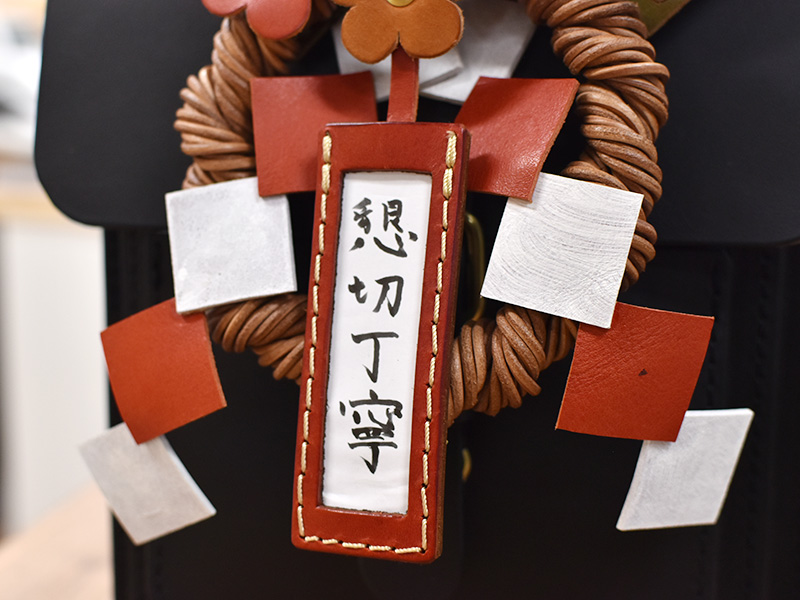 懇切丁寧